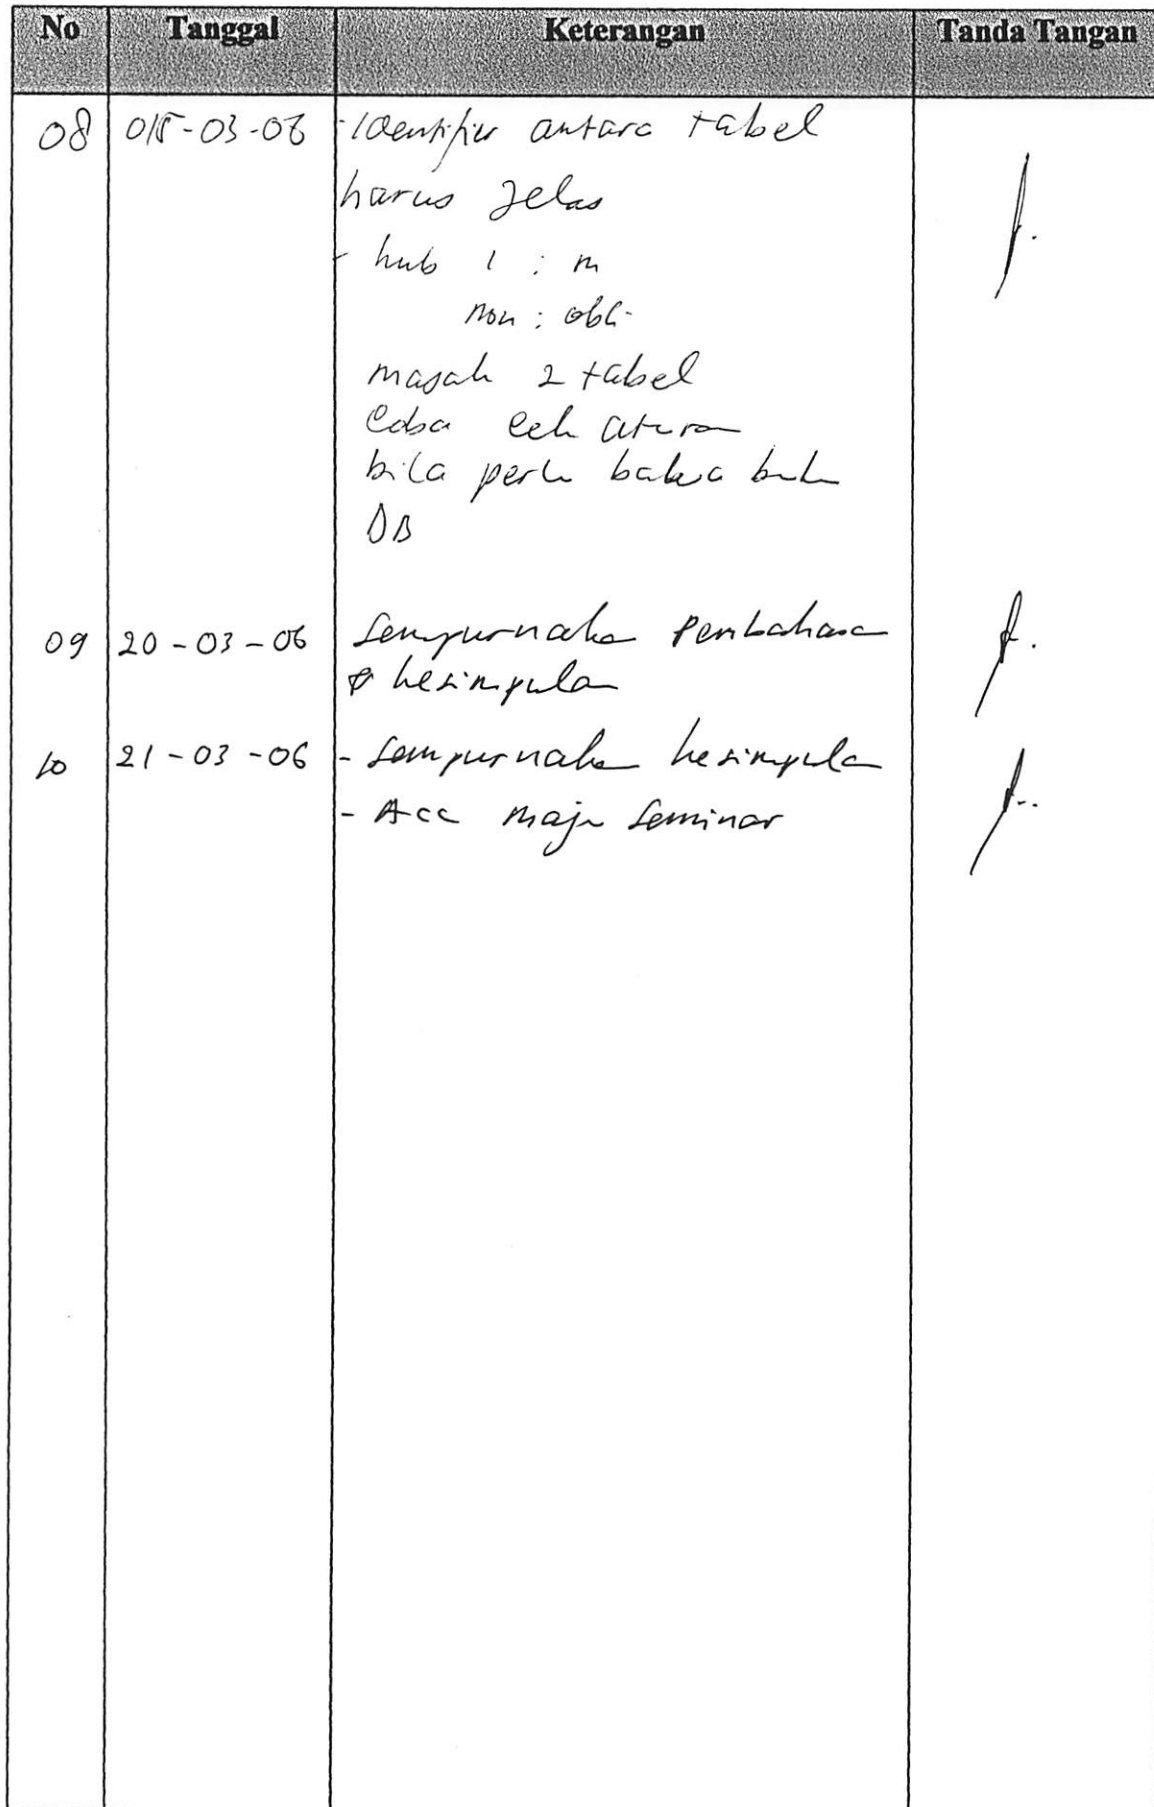 No Tanggal Keterangan Tanda Tangan
08 015-03-06 - Identifier antara tabel
harus jelas
- hub 1 : m
non : obl.
masak 2 tabel
Coba cek aturan
bila perlu bawa buku
DB
09 20-03-06 Sempurnakan Pembahasan
& kesimpulan
10 21-03-06 - Sempurnakan kesimpulan
- Acc maju Seminar